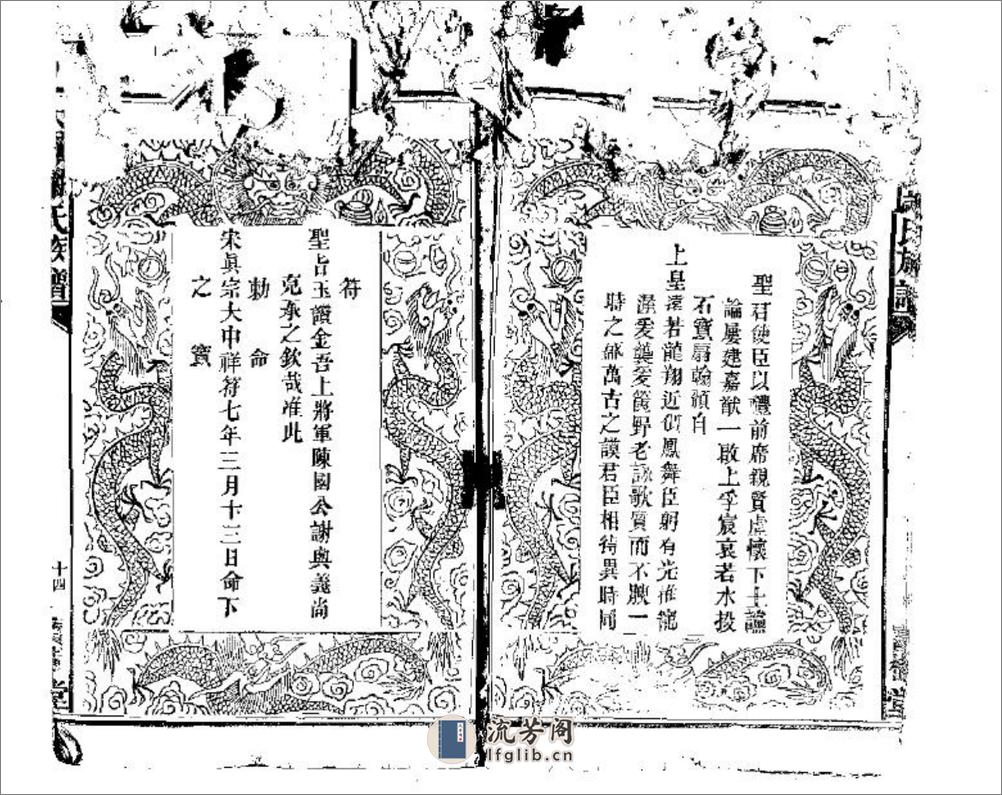 聖君使臣以禮前席親賢虛懷下士讜
論屢建嘉猷一敢上孚宸衷若水投
石寶扇翰頒自
上皇遠若龍翔近儕鳳舞臣躬有光推寵
深愛龔爰簡野老詠歌質而不腴一
時之 萬古之謨君臣相待異時同
符
聖旨玉讚金吾上將軍陳國公謝興義尚
克承之欽哉准此
勅命
宋眞宗大中祥符七年三月十三日命下
之寶
氏族譜
十四
堂
氏族譜
堂
流芳阁
lfglib.cn